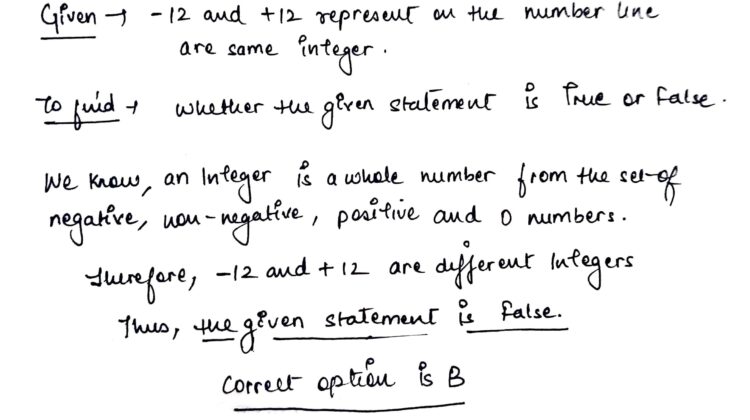 Given → -12 and +12 represent on the number line
are same integer.
To find → whether the given statement is True or False.
We know, an Integer is a whole number from the set of
negative, non-negative, positive and 0 numbers.
Therefore, -12 and +12 are different Integers
Thus, the given statement is False.
Correct option is B